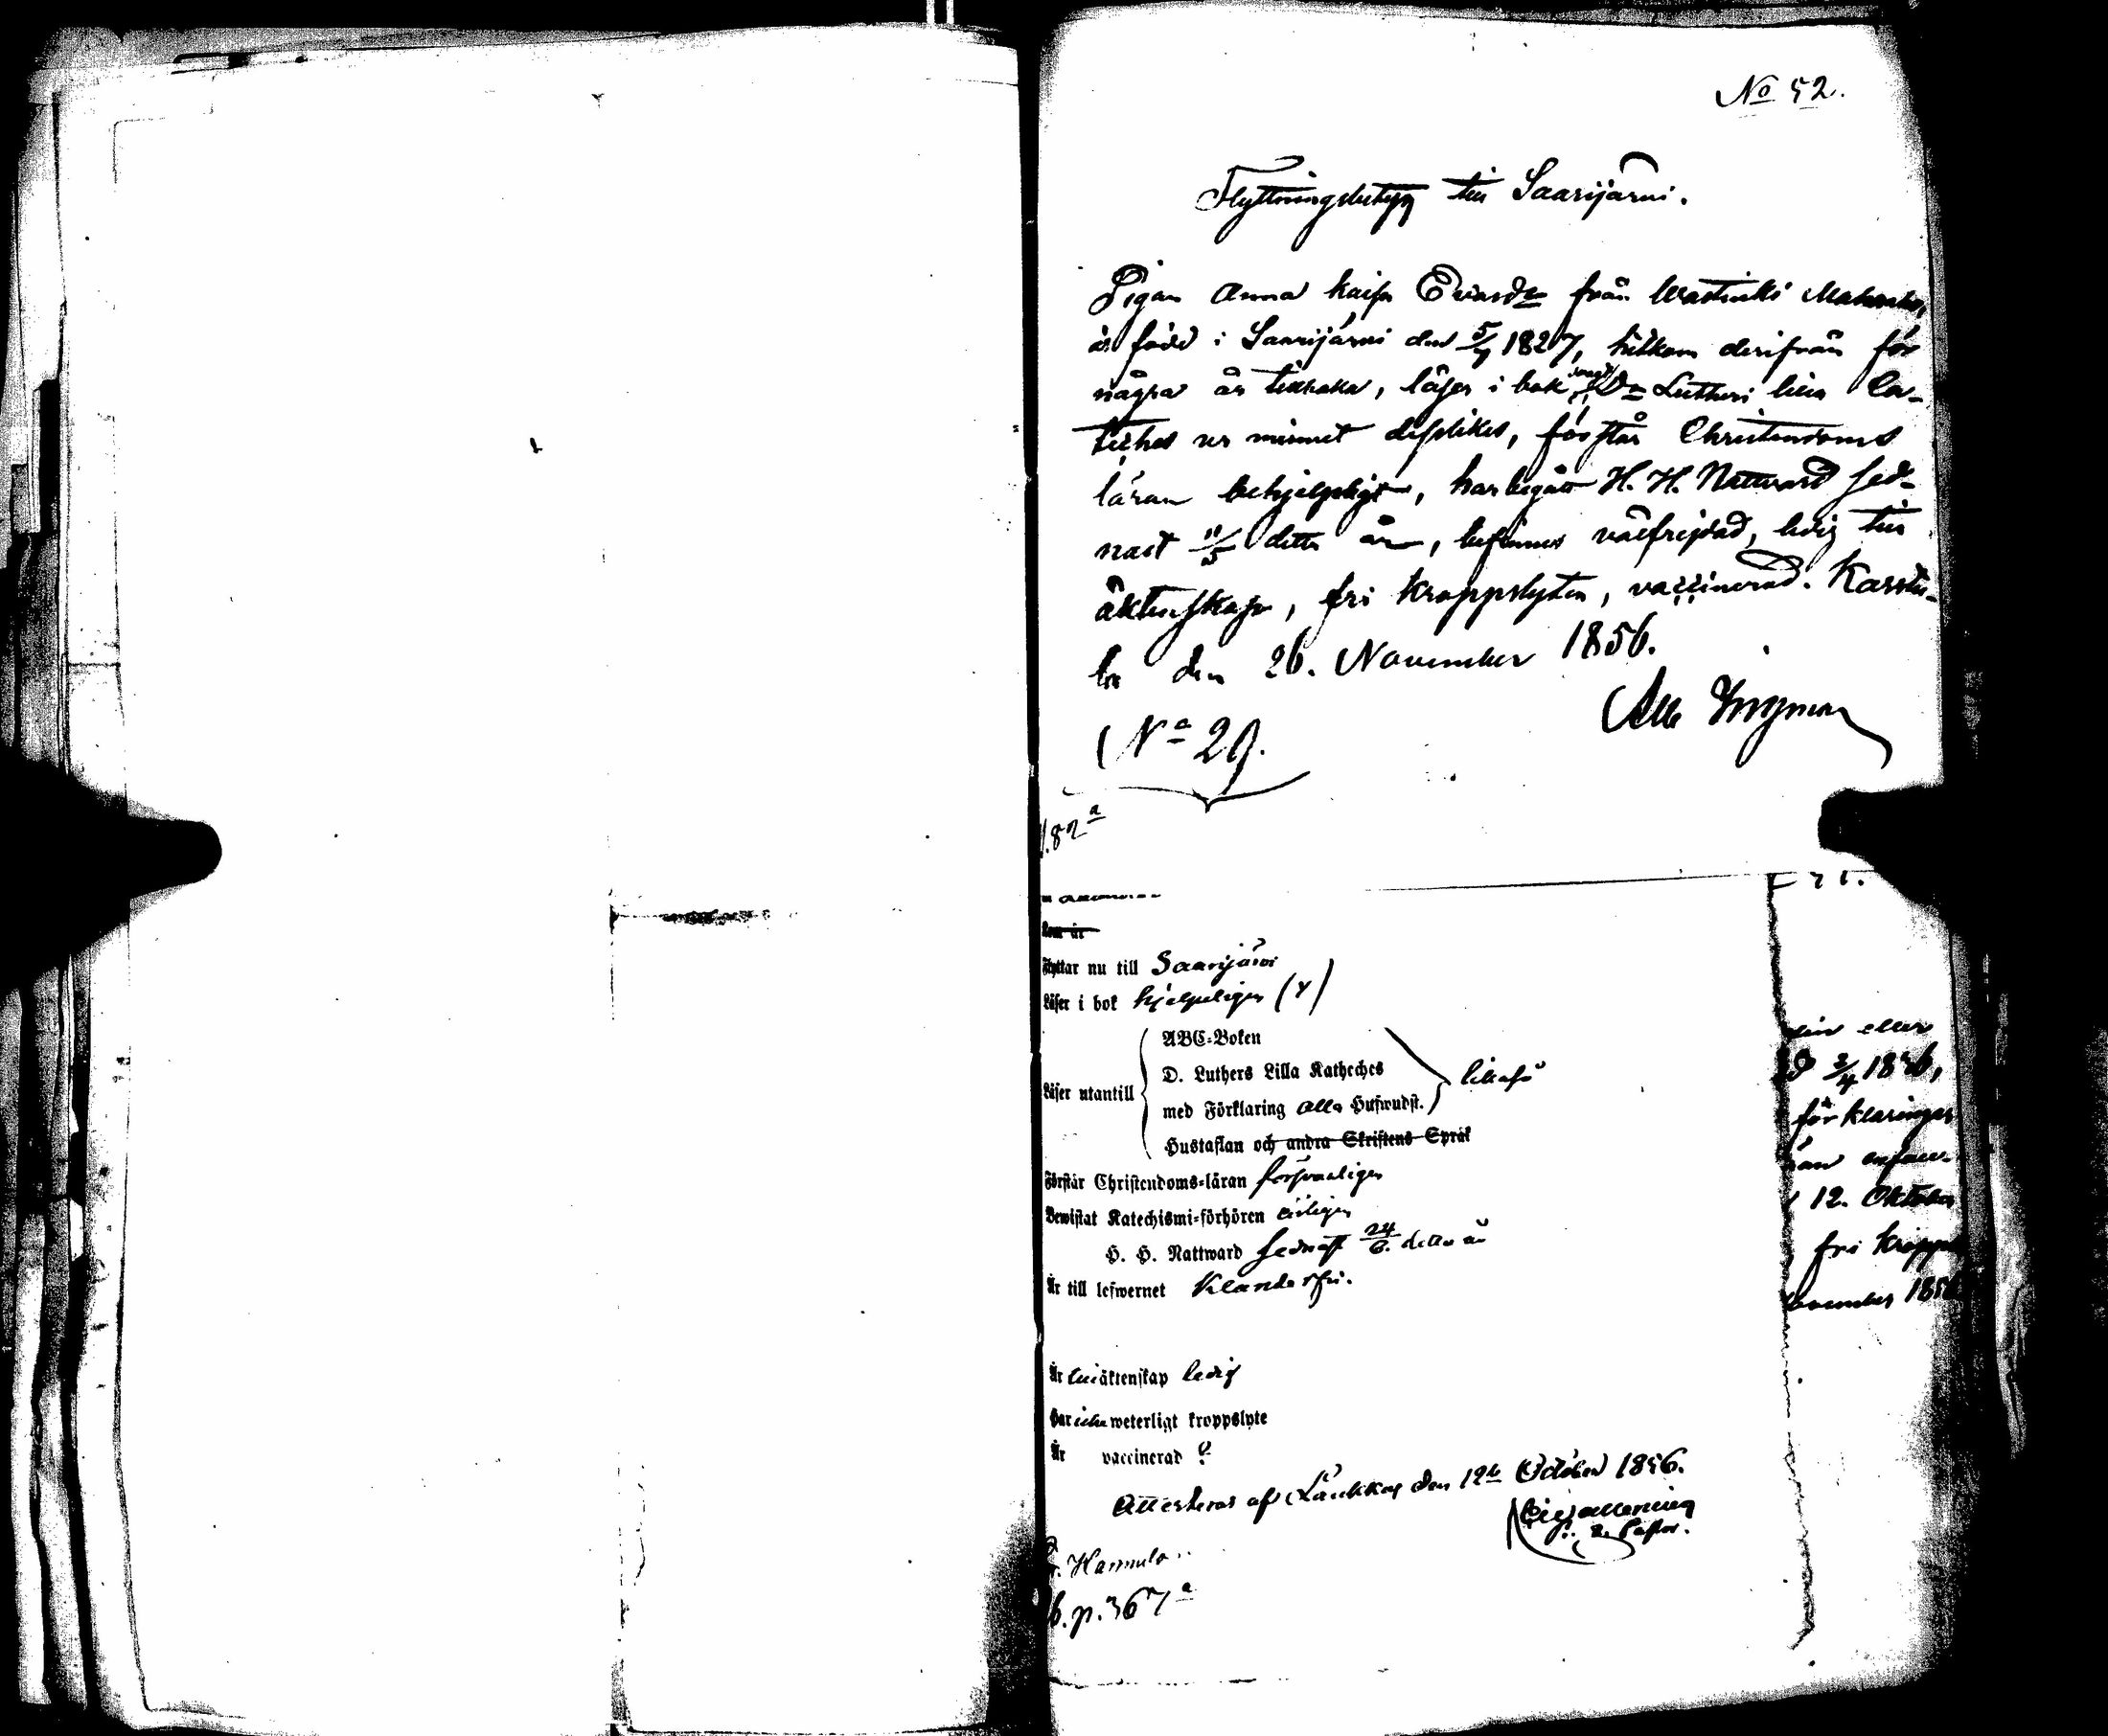 No 52.
Flyttningsbetyg till Saarijärvi.
Pigan Anna Kaisa från
är född i Saarijärvi den 5/7 1827, hitkom derifrån för
några år tillbaka, läser i bok svagt, Dr Lutheri lilla Ca-
teches ur minnet desslikes, förstår Christendoms
läran behjelpligt, har begått H. H. Nattvard sed-
nast 11/5 detta år, befinnes välfrejdad, ledig till
äktenskap, fri kroppslyten, vaccinerad. Karstu-
la den 26. November 1856.
Ingman
(No 29.
1.82a
Flyttar nu till Saarijärvi
Läser i bok hjelpeligen (y)
Läser utantill
ABC-Boken
D. Luthers Lilla Katheches
med Förklaring alla Hufwudst.
likaså
Hustaflan och andra Skriftens Språk
Förstår Christendoms-läran försvarligen
Bewistat Katechismi-förhören årligen
H. H. Nattward sednast 24/6. detta år
Är till lefwernet Klanderfri.
Är till äktenskap ledig
Har icke weterligt kroppslyte
Är vaccinerad
Attesteras af Laukkas den 12te October 1856.
v. Pastor.
Hannula
b. p. 367a
eller
d 3/4 1856,
förklaringar
12. Oktober
fri kropps
November 1856